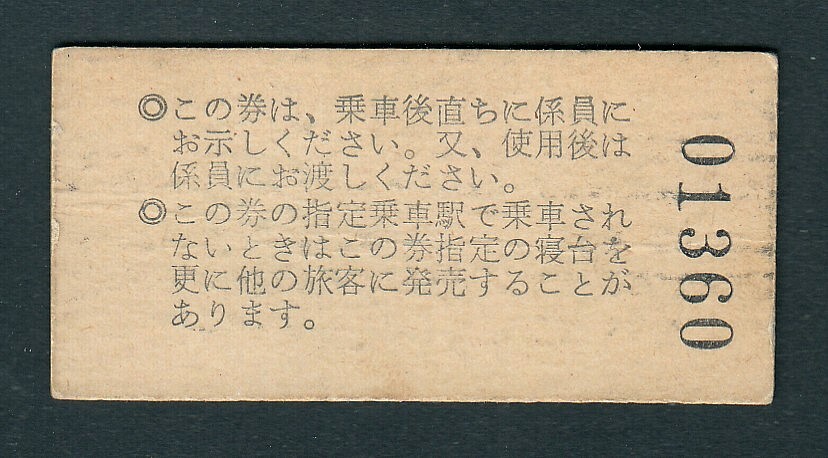 ◎この券は、乗車後直ちに係員に
お示しください。又、使用後は
係員にお渡しください。
◎この券の指定乗車駅で乗車され
ないときはこの券指定の寝台を
更に他の旅客に発売することが
あります。
01360